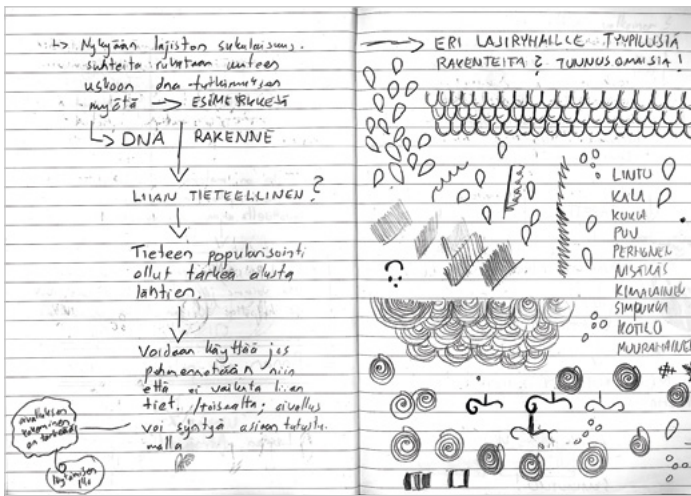 ↳ Nykyään lajiston sukulaisuus-
suhteita rukataan uuteen
uskoon dna tutkimuksen
myötä → ESIMERKKEJÄ
↳ DNA RAKENNE
LIIAN TIETEELLINEN?
Tieteen popularisointi
ollut tärkeä alusta
lähtien.
Voidaan käyttää jos
pehmennetään niin
että ei vaikuta liian
tiet. /toisaalta; oivallus
voi syntyä asiaan tutustu-
malla
oivalluksen
kokeminen
on tärkeää
löytämisen
ilo
→ ERI LAJIRYHMILLE TYYPILLISIÄ
RAKENTEITA? TUNNUSOMAISIA!
LINTU
KALA
KUKKA
PUU
PERHONEN
NISÄKÄS
KIMALAINEN
SIMPUKKA
KOTILO
MUURAHAINEN